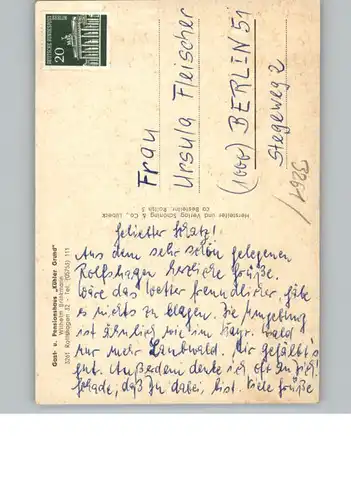 Geliebter Schatz!
Aus dem sehr schön gelegenen
Rolfshagen herzliche Grüße.
Wäre das Wetter freundlicher, gäbe
es nichts zu klagen. Die Umgebung
ist ähnlich wie im Bayr. Wald
nur mehr Laubwald. Mir gefällt's
gut. Außerdem denke ich oft an Dich!
Schade, daß Du dabei bist. Viele Grüße
Frau
Ursula Fleischer
(1000) BERLIN 51
Stegeweg 2
DEUTSCHE BUNDESPOST BERLIN
20
Gast- u. Pensionshaus „Kühler Grund"
3261 Rolfshagen 32 - Tel. (05753) 111
Hersteller und Verlag Schöning & Co., Lübeck